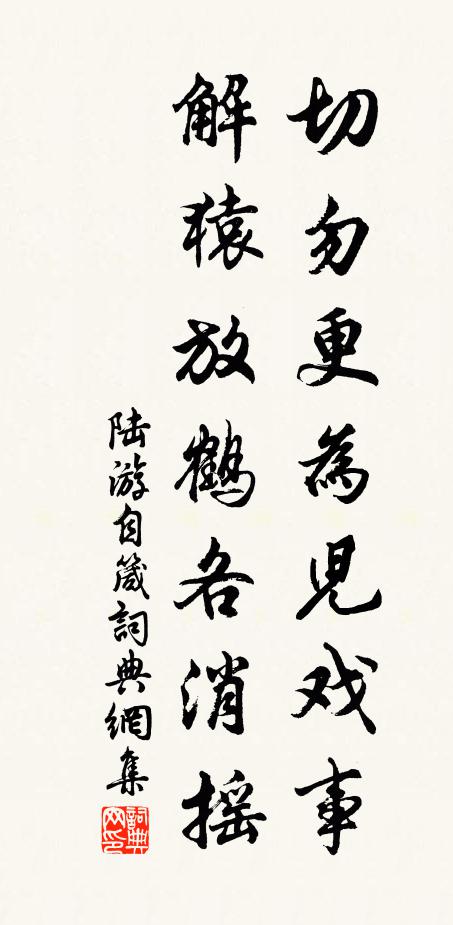 切勿更為児戏事
解猿放鶴各消摇
陆游自箴詞典網集
詞典网印